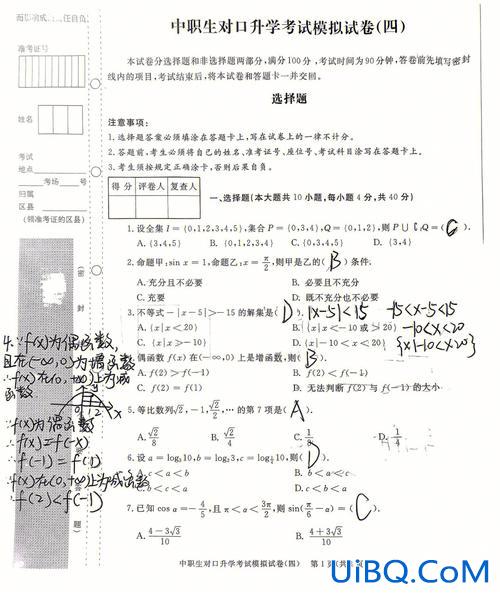 中职生对口升学考试模拟试卷(四)
本试卷分选择题和非选择题两部分,满分100分,考试时间为90分钟,答卷前先填写密封
线内的项目,考试结束后,将本试卷和答题卡一并交回。
选择题
准考证号
姓名
考试
地点
考场 号
归属
区县
(领准考证的区县)
密
封
题
注意事项:
1.选择题答案必须填涂在答题卡上,写在试卷上的一律不计分。
2.答题前,考生必须将自己的姓名、准考证号、座位号、考试科目涂写在答题卡上。
3.考生须按规定正确涂卡,否则后果自负。
得分 评卷人 复查人
一、选择题(本大题共10小题,每小题4分,共40分)
1.设全集I={0,1,2,3,4,5},集合P={0,3,4},Q={0,1,2},则P∪∁IQ=( C ).
A.{3,4,5} B.{0,1,2,3,4} C.{0,3,4,5} D.{3,4}
2.命题甲:sin x=1,命题乙:x=π/2,则甲是乙的( B )条件.
A.充分且不必要 B.必要且不充分
C.充要 D.既不充分也不必要
3.不等式-|x-5|>-15的解集是( D ). |x-5|<15 -15<x-5<15
A.{x|x<20} B.{x|x<-10或x>20} -10<x<20
C.{x|x>-10} D.{x|-10<x<20} {x|-10<x<20}
4.偶函数f(x)在(-∞,0)上是增函数,则( B ).
A.f(2)>f(-1) B.f(2)<f(-1)
C.f(2)=f(1) D.无法判断f(2)与f(-1)的大小
4.∵f(x)为偶函数,
且在(-∞,0)为增函数
∴f(x)在(0,+∞)上为减
函数
0 1 2 x
∵f(x)为偶函数
∴f(x)=f(-x)
∴f(-1)=f(1)
∵f(x)在(0,+∞)上为减函数
∴f(2)<f(-1)
5.等比数列√2,-1,√2/2,…的第7项是( A ).
A.√2/8 B.√2/4 C.1/8 D.1/4
6.设a=log₃10,b=log₂3,c=log 10,则( D ).
A.c<a<b B.b<a<c
b<c<a D.c<b<a
7.已知cos α=-4/5,且π<α<3π/2,则sin(π/6-α)=( C ).
A.(4-3√3)/10 B.(4+3√3)/10
中职生对口升学考试模拟试卷(四) 第1页(共
UiBQ.CoM